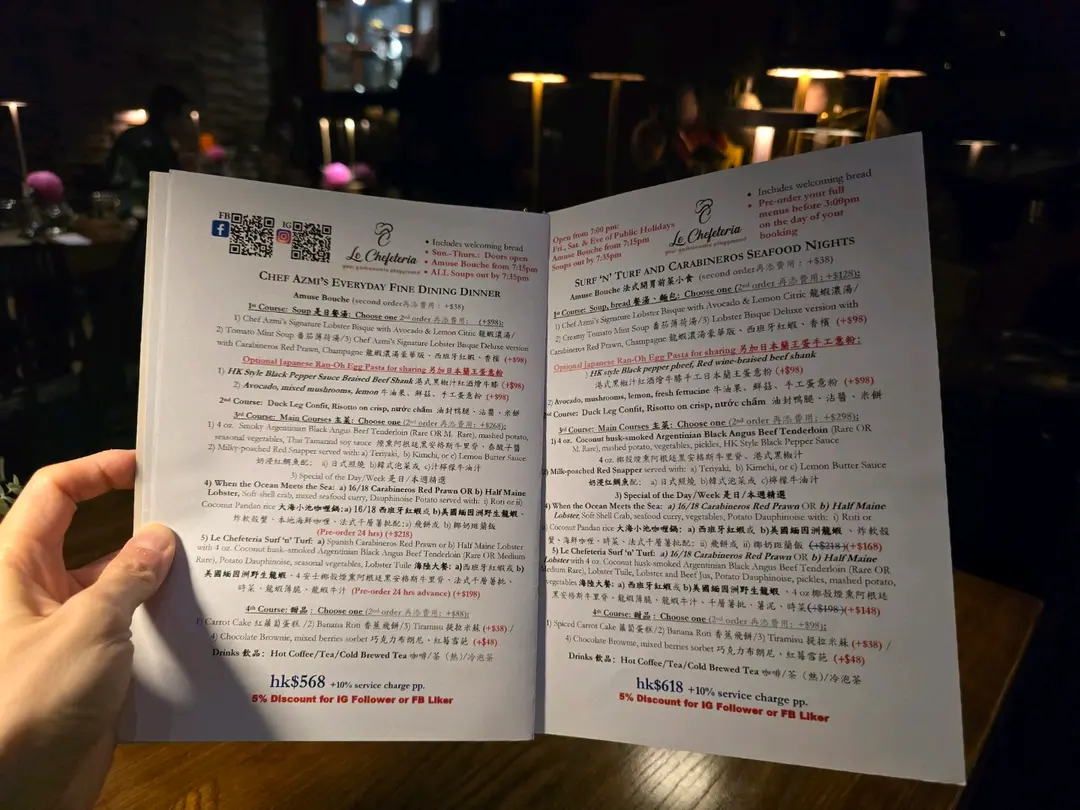 FB
IG
Le Chefeteria
your gastronomic playground
• Includes welcoming bread
• Sun.-Thurs.: Doors open
• Amuse Bouche from 7:15pm
• ALL Soups out by 7:35pm
CHEF AZMI'S EVERYDAY FINE DINING DINNER
Amuse Bouche (second order再添費用: +$38)
1st Course: Soup 是日餐湯: Choose one (2nd order 再添費用: (+$98):
1) Chef Azmi's Signature Lobster Bisque with Avocado & Lemon Citric 龍蝦濃湯/
2) Tomato Mint Soup 番茄薄荷湯/3) Chef Azmi's Signature Lobster Bisque Deluxe version
with Carabineros Red Prawn, Champagne 龍蝦濃湯豪華版、西班牙紅蝦、香檳 (+$98)
Optional Japanese Ran-Oh Egg Pasta for sharing 另加日本蘭王蛋粉
1) HK style Black Pepper Sauce Braised Beef Shank 港式黑椒汁紅酒燴牛膝 (+$98)
2) Avocado, mixed mushrooms, lemon 牛油果、鮮菇、手工蛋意粉 (+$98)
2nd Course: Duck Leg Confit, Risotto on crisp, nước chấm 油封鴨腿、沾醬、米餅
3rd Course: Main Courses 主菜: Choose one (2nd order 再添費用: +$268):
1) 4 oz. Smoky Argentinian Black Angus Beef Tenderloin (Rare OR M. Rare), mashed potato,
seasonal vegetables, Thai Tamarind soy sauce 煙熏阿根廷黑安格斯牛里脊、泰酸子醬
2) Milky-poached Red Snapper served with: a) Teriyaki, b) Kimchi, or c) Lemon Butter Sauce
奶浸紅鯛魚配: a) 日式照燒 b)韓式泡菜或 c)汁檸檬牛油汁
3) Special of the Day/Week 是日/本週精選
4) When the Ocean Meets the Sea: a) 16/18 Carabineros Red Prawn OR b) Half Maine
Lobster, Soft-shell crab, mixed seafood curry, Dauphinoise Potato served with: i) Roti or ii)
Coconut Pandan rice 大海小池咖喱鍋: a) 16/18 西班牙紅蝦或 b)美國緬因洲野生龍蝦、
炸軟殼蟹、本地海鮮咖喱、法式千層薯批配: i) 幾餅或 ii) 椰奶斑蘭飯
(Pre-order 24 hrs) (+$218)
5) Le Chefeteria Surf 'n' Turf: a) Spanish Carabineros Red Prawn or b) Half Maine Lobster
with 4 oz. Coconut husk-smoked Argentinian Black Angus Beef Tenderloin (Rare OR Medium
Rare), Potato Dauphinoise, seasonal vegetables, Lobster Tuile 海陸大餐: a)西班牙紅蝦或 b)
美國緬因洲野生龍蝦、4安士椰殼煙熏阿根廷黑安格斯牛里脊、法式千層薯批、
時菜、龍蝦薄脆、龍蝦牛汁 (Pre-order 24 hrs advance) (+$198)
4th Course: 甜品: Choose one (2nd order 再添費用: +$88):
1) Carrot Cake 紅蘿蔔蛋糕 /2) Banana Roti 香蕉幾餅/3) Tiramisu 提拉米蘇 (+$38) /
4) Chocolate Brownie, mixed berries sorbet 巧克力布朗尼、紅莓雪葩 (+$48)
Drinks 飲品: Hot Coffee/Tea/Cold Brewed Tea 咖啡/茶 (熱)/冷泡茶
hk$568 +10% service charge pp.
5% Discount for IG Follower or FB Liker
Open from 7:00 pm:
Fri., Sat. & Eve of Public Holidays
Amuse Bouche from 7:15pm
Soups out by 7:35pm
Le Chefeteria
your gastronomic playground
• Includes welcoming bread
• Pre-order your full
menus before 3:00pm
on the day of your
booking
SURF 'N' TURF AND CARABINEROS SEAFOOD NIGHTS
Amuse Bouche 法式開胃前菜小食 (second order再添費用: +$38)
1st Course: Soup, bread 餐湯、麵包: Choose one (2nd order 再添費用: +$128):
1) Chef Azmi's Signature Lobster Bisque with Avocado & Lemon Citric 龍蝦濃湯/
2) Creamy Tomato Mint Soup 番茄薄荷湯/3) Lobster Bisque Deluxe version with
Carabineros Red Prawn, Champagne 龍蝦濃湯豪華版、西班牙紅蝦、香檳 (+$98)
Optional Japanese Ran-Oh Egg Pasta for sharing 另加日本蘭王蛋手工意粉:
1) HK style Black pepper pheef, Red wine-braised beef shank
港式黑椒汁紅酒燴牛膝手工日本蘭王蛋意粉 (+$98)
2) Avocado, mushrooms, lemon, fresh fettucine 牛油果、鮮菇、手工蛋意粉 (+$98)
2nd Course: Duck Leg Confit, Risotto on crisp, nước chấm 油封鴨腿、沾醬、米餅
3rd Course: Main Courses 主菜: Choose one (2nd order 再添費用: +$298):
1) 4 oz. Coconut husk-smoked Argentinian Black Angus Beef Tenderloin (Rare OR
M. Rare), mashed potato, vegetables, pickles, HK Style Black Pepper Sauce
4 oz. 椰殼煙熏阿根廷黑安格斯牛里脊、港式黑椒汁
2) Milk-poached Red Snapper served with: a) Teriyaki, b) Kimchi, or c) Lemon Butter Sauce
奶浸紅鯛魚配: a) 日式照燒 b)韓式泡菜或 c) 檸檬牛油汁
3) Special of the Day/Week 是日/本週精選
4) When the Ocean Meets the Sea: a) 16/18 Carabineros Red Prawn OR b) Half Maine
Lobster, Soft Shell Crab, seafood curry, vegetables, Potato Dauphinoise with: i) Roti or
Coconut Pandan rice 大海小池咖喱鍋: a) 西班牙紅蝦或 b)美國緬因洲龍蝦、炸軟殼
蟹、海鮮咖喱、法式千層薯批配: i) 幾餅或 ii) 椰奶斑蘭飯 (+$218 )(+$168)
5) Le Chefeteria Surf 'n' Turf: a) 16/18 Carabineros Red Prawn OR b) Half Maine
Lobster with 4 oz. Coconut husk-smoked Argentinian Black Angus Beef Tenderloin (Rare OR
Medium Rare), Lobster Tuile, Lobster and Beef Jus, Potato Dauphinoise, pickles, mashed potato,
vegetables 海陸大餐: a)西班牙紅蝦或 b)美國緬因洲野生龍蝦、4 oz 椰殼煙熏阿根廷
黑安格斯牛里脊、龍蝦薄脆、龍蝦牛汁、千層薯批、薯泥、時菜(+$198 )(+$148)
4th Course: 甜品: Choose one (2nd order 再添費用: +$98):
1) Spiced Carrot Cake 蘿蔔蛋糕/2) Banana Roti 香蕉幾餅/3) Tiramisu 提拉米蘇 (+$38) /
4) Chocolate Brownie, mixed berries sorbet 巧克力布朗尼、紅莓雪葩 (+$48)
Drinks 飲品: Hot Coffee/Tea/Cold Brewed Tea 咖啡/茶 (熱)/冷泡茶
hk$618 +10% service charge pp.
5% Discount for IG Follower or FB Liker